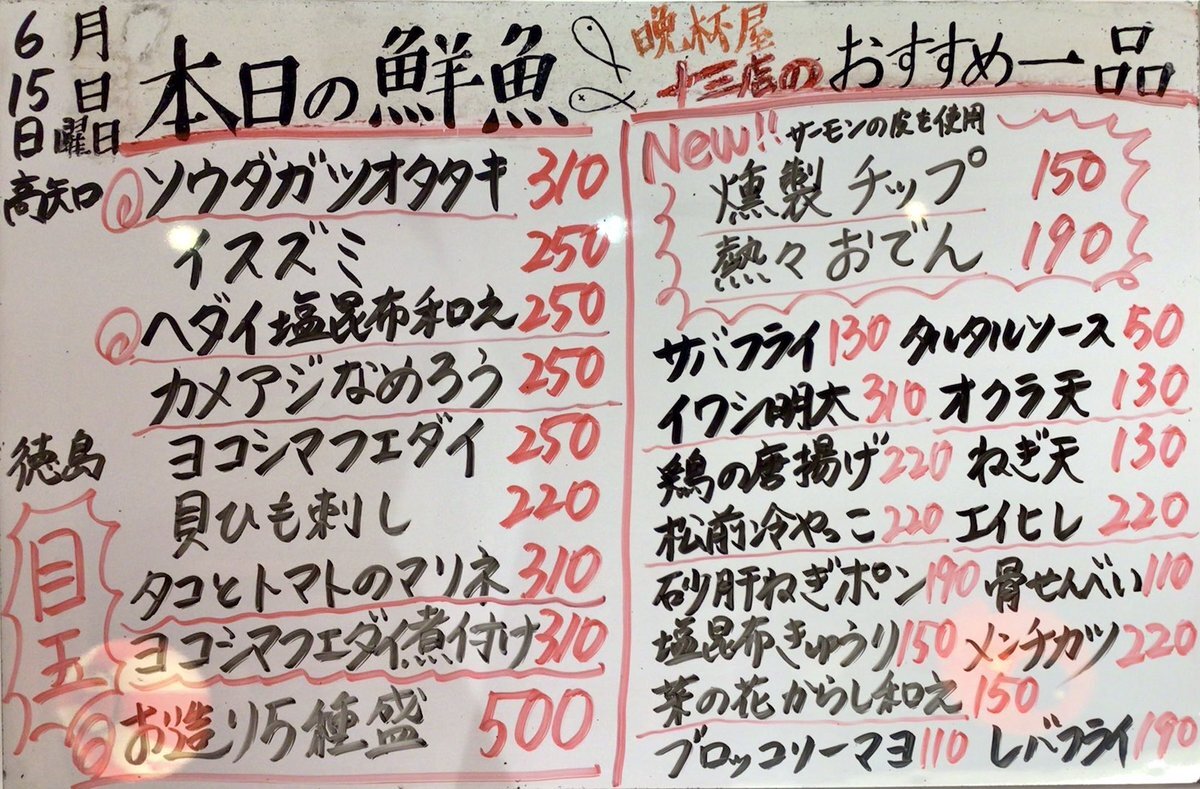 6月
15日
日曜日
本日の鮮魚
高知
ソウダガツオタタキ 310
イスズミ 250
ヘダイ塩昆布和え 250
カメアジなめろう 250
徳島
ヨコシマフエダイ 250
貝ひも刺し 220
タコとトマトのマリネ 310
ヨコシマフエダイ煮付け 310
目玉
お造り5種盛 500
晩杯屋
十三店のおすすめ一品
New!! サーモンの皮を使用
燻製チップ 150
熱々おでん 190
サバフライ 130 タルタルソース 50
イワシ明太 310 オクラ天 130
鶏の唐揚げ 220 ねぎ天 130
松前冷やっこ 220 エイヒレ 220
砂肝ねぎポン 190 骨せんべい 110
塩昆布きゅうり 150 メンチカツ 220
菜の花からし和え 150
ブロッコリーマヨ 110 レバフライ 190